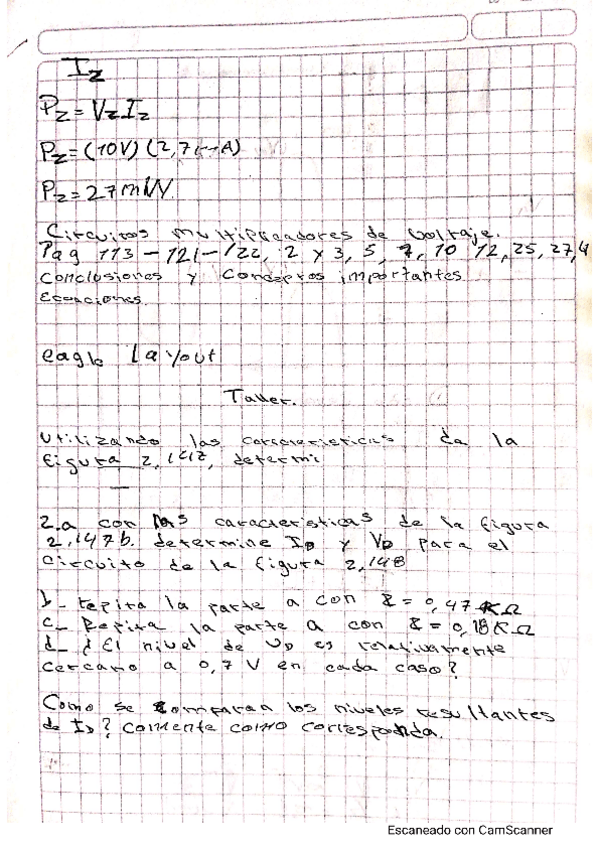 Iz
Pz = Vz Iz
Pz = (10V) (2,7 mA)
Pz = 27mW
Circuitos multiplicadores de voltaje.
Pag 113 - 121 - 122, 2 y 3, 5, 7, 10 12, 25, 27, 4
Conclusiones y Conceptos importantes
Ecuaciones.
eagle Layout
Taller.
Utilizando las caracteristicas de la
figura 2,147, determi
2.a con las caracteristicas de la figura
2,147b. determine ID y VD para el
circuito de la figura 2,148
b- repita la parte a con R = 0,47 KΩ
c- Repita la parte a con R = 0,18 KΩ
d- ¿El nivel de VD es relativamente
cercano a 0,7 V en cada caso?
Como se comparan los niveles resultantes
de ID? comente como corresponda.
Escaneado con CamScanner